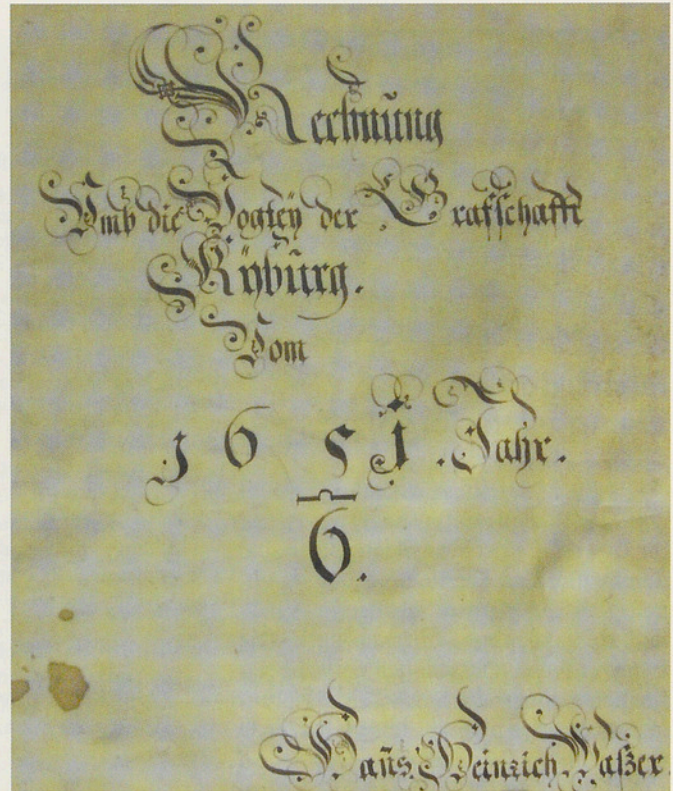 Rechnung
Vmb die Vogteÿ der Graffschafft
Kÿburg.
Vom
1651. Jahr.
6.
Hans Heinrich Waßer